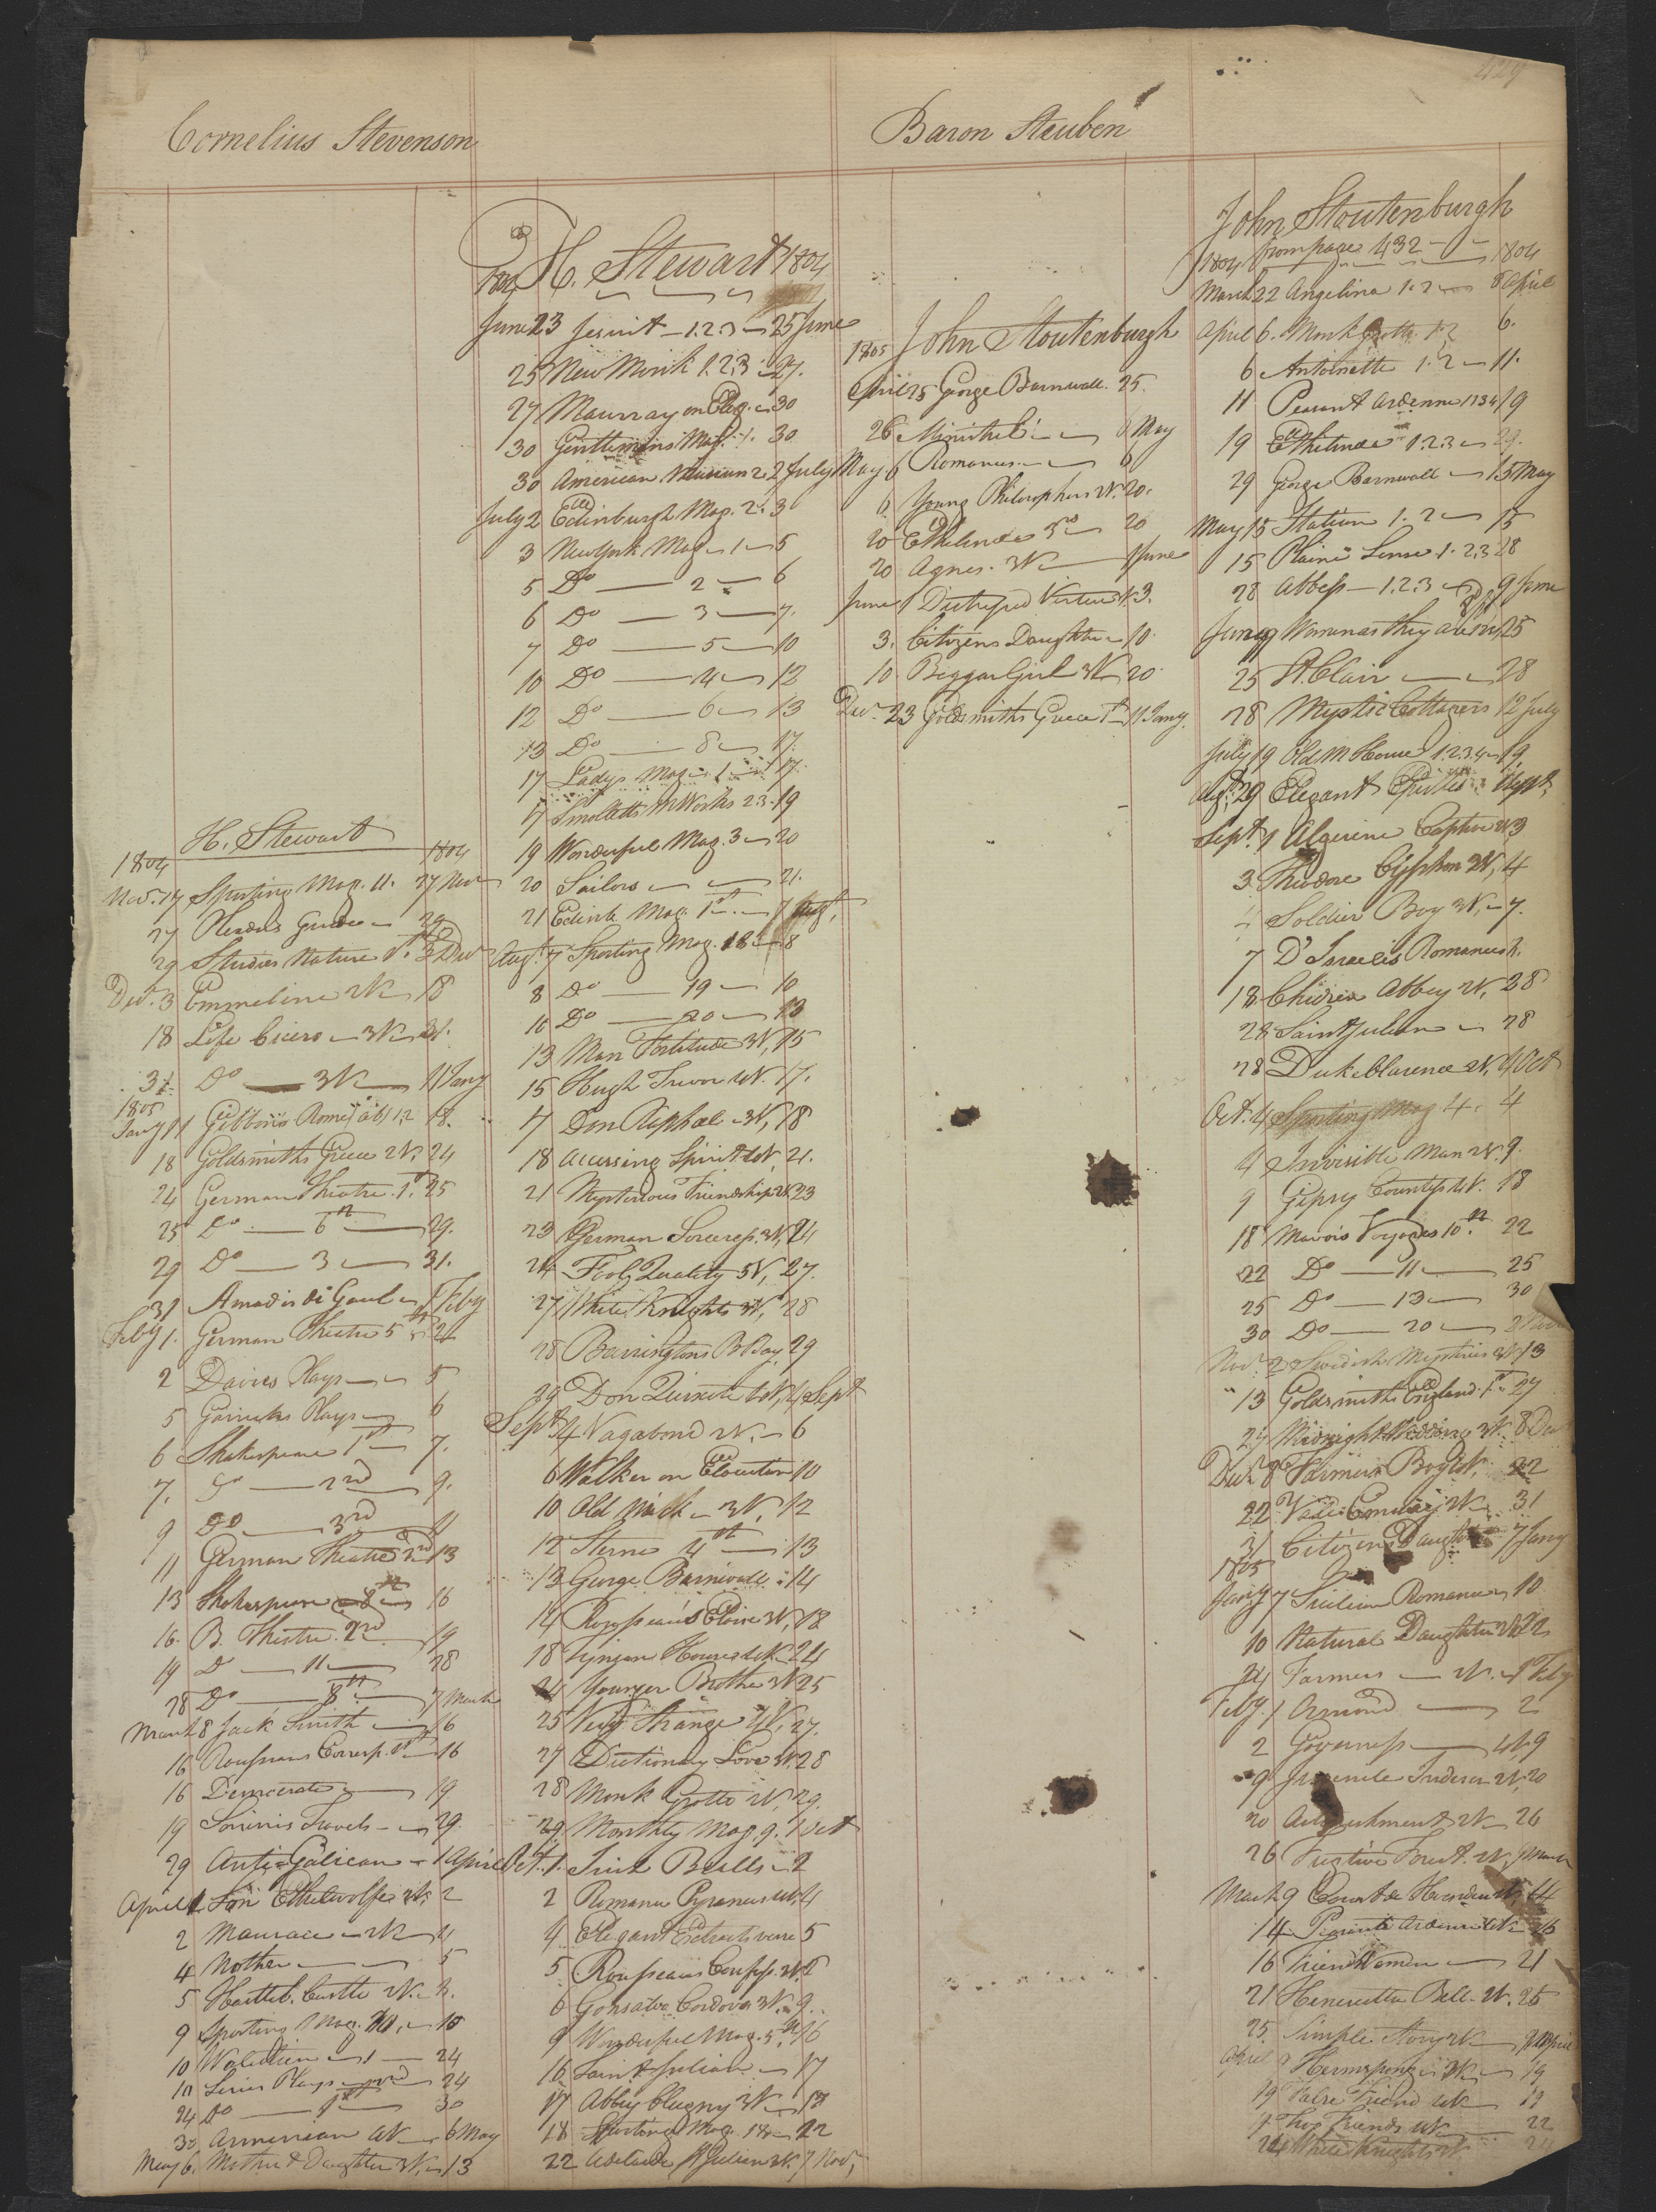 429
Cornelius Stevenson
Baron Steuben
H. Stewart
1804 1804
Nov. 17 Sporting Mag. 11. 27 Nov
27 Readers Guide 29
29 Studies Nature 3 Dec
Dec. 3 Emmeline 2V. 18
18 Life Cicero 3V. 31.
31. Do 3V. 11 Jany
1805
Jany 11 Gibbons Rome 1.2 18.
18 Goldsmiths Greece 2V. 24
24 German Theatre 1st 25
25 Do 6th 29.
29 Do 3 31.
31 Amadis de Gaul 1 Feby
Feby 1. German Theatre 5th 2
2 Davies Plays 5
5 Garricks Plays 6
6 Shakespeare 1st 7.
7. Do 2nd 9.
9 Do 3rd 11
11 German Theatre 2nd 13
13 Shakespeare 8th 16
16. B. Theatre 2nd 19
19 Do 11 28
28 Do 8th 7 March
March 8 Jack Smith 16
16 Rousseaus Corresp. 16
16 Democrate 19.
19 Sonninis Travels 29.
29 Anti Galican 1 April
April 1 Son Ethelwolfe 2
2 Mauraice 2V 4
4 Mother 5
5 Castle 2V.
9 Sporting Mag. 10
10 1 24
10 Plays 2nd 24
24 Do 1st 30
30 Armenian 4V 6 May
May 6. Mother & Daughter 3V. 13
H. Stewart 1804
1804
June 23 Jesuit 1.2.3 25 June
25 New Monk 1.2.3 27.
27 Murray on Eleg. 30
30 Gentlemans Mag. 1. 30
30 American Museum 2. 2 July
July 2 Edinburgh Mag. 2. 3
3 New York Mag 1 5
5 Do 2 6
6 Do 3 7.
7 Do 5 10
10 Do 4 12
12 Do 6 13
13 Do 8 17.
17 Ladys Mag 1 17.
17 Smolletts Works 2.3. 19
19 Wonderful Mag. 3 20
20 Sailors 21.
21 Edinb. Mag. 1st 7 Augt,
Augt. 7 Sporting Mag. 18 8
8 Do 19 10
10 Do 20 13
13 Man Fortitude 3V, 15
15 Hugh Trevor 4V. 17.
17 Don Raphael 3V, 18
18 Accusing Spirit 4V, 21.
21 Mysterious Friendship 2V 23
23 German Sorceress. 3V, 24
24 Fool Quality 5V, 27.
27 White Knights 3V, 28
28 Barringtons B Bay, 29
29 Don Quixote 4V, 4 Sept
Sept 4 Vagabond 2V. 6
6 Walker on Elocution 10
10 Old Nick 3V. 12
12 Sterne 4th 13
13 George Barnwall 14
14 Rousseau's Eloise 3V, 18
18 House 4V. 24
24 Younger Brother 2V 25
25 Very Strange 2V, 27.
27 Dictionary Love V. 28
28 Monk Grotto 2V, 29.
29. Monthly Mag. 9. 1 Oct
Oct. 1. Bells 2
2 Romance Pyranees 4V, 4
4 Elegant Extracts verse 5
5 Rousseaus Confess. 2V. 6
6 Gonsalva Cordova 3V. 9.
9 Wonderful Mag. 5th 16
16 Saint Julian 17
17 Abbey Clugny 3V 18
18 Sporting Mag. 18 22
22 Adelaide St Julien 2V. 7 Nov,
John Stoutenburgh
1805
April 25 George Barnwall. 25.
26 Minstrel 6 May
May 6 Romances 6
6 Young Philosophers 2V. 20.
20 Ethelinda 3rd 20
20 Agnes. 3V 1 June
June 1 Distressed Virtue V. 3.
3. Citizens Daughter 10.
10 Beggar Girl 3V 20
Dec. 23 Goldsmiths Greece 1st 11 Jany.
John Stoutenburgh
from page 432
1804 1804
March 22 Angelina 1.2 6 April
April 6. Monk Grotto 1.2 6.
6 Antoinette 1.2 11.
11 Peasant Ardenne 1234 19
19 Ethelinda 1.2.3 29.
29 George Barnwall 15 May
May 15 Station 1.2 15
15 Plain Sense 1.2.3 28
28 Abbess 1.2.3 9 June
June 9 Woman as they are 2V, 25
25 St. Clair 28
28 Mystic Cottagers 12 July
July 19 Old M House 1.2.3.4 19
Augt. 29 Elegant Epistles 1 Sept,
Sept. 1 Algerine Captive 2V 3
3 Theodore Cyphon 3V, 4
4 Soldier Boy 3V, 7.
7 D'Israelis Romances
18 Abbey 2V, 28
28 Saint Julien 28
28 Duke Clarence 2V, 4 Oct
Oct. 4 Sporting Mag 4. 4
4 Invisible Man 2V. 9.
9 Gipsy Countess 4V. 18
18 Mavors Voyages 10th. 22
22 Do 11 25
25 Do 13 30
30 Do 20 2 Nov
Nov. 2 Swedish Mysteries 3V 13
13 Goldsmiths England 1st 27
27 Midnight Wedding 3V. 8 Dec
Dec. 8 Farmers Boy 22
22 2V 31
31 Citizens Daughter 7 Jany
1805
Jany 7 Sicilian Romance 10
10 Natural Daughter 2V 22
24 Farmers 2V. 1 Feby
Feby. 1 Ormond 2
2 Governess 9
9 Juvenile Indiscn 2V. 20
20 Attachment 2V 26
26 Fugitive Forest. 2V, March
March 9 Count de 14
14 Peasant Ardenne 4V 16
16 21
21 Henrietta Bell. 2V. 25
25. Simple Story 2V April
April Hermsprong 3V. 19
19 False Friend 4V 19
19 Friends 4V 22
24 White Knights V.